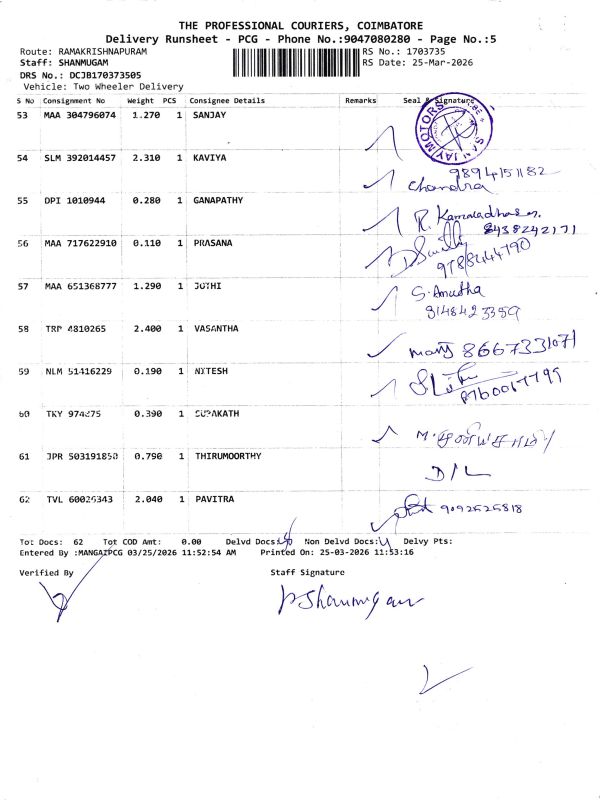 THE PROFESSIONAL COURIERS, COIMBATORE
Delivery Runsheet - PCG - Phone No.:9047080280 - Page No.:5
Route: RAMAKRISHNAPURAM RS No.: 1703735
Staff: SHANMUGAM RS Date: 25-Mar-2026
DRS No.: DCJB170373505
Vehicle: Two Wheeler Delivery
S No Consignment No Weight PCS Consignee Details Remarks Seal & Signature
53 MAA 304796074 1.270 1 SANJAY
SANJAY MOTORS
54 SLM 392014457 2.310 1 KAVIYA
9894151182
Chandra
55 DPI 1010944 0.280 1 GANAPATHY
R. Kamaladhasan
8438242171
56 MAA 717622910 0.110 1 PRASANA
9788444790
57 MAA 651368777 1.290 1 JOTHI
S. Amutha
9148423359
58 TRP 4810265 2.400 1 VASANTHA
mary 8667331071
59 NLM 51416229 0.190 1 NITESH
60 TKY 974875 0.390 1 SUPAKATH
61 JPR 503191850 0.790 1 THIRUMOORTHY
D/L
62 TVL 60029343 2.040 1 PAVITRA
9092525818
Tot Docs: 62 Tot COD Amt: 0.00 Delvd Docs: Non Delvd Docs: 4 Delvy Pts:
Entered By :MANGAIPCG 03/25/2026 11:52:54 AM Printed On: 25-03-2026 11:53:16
Verified By Staff Signature
P Shanmugam